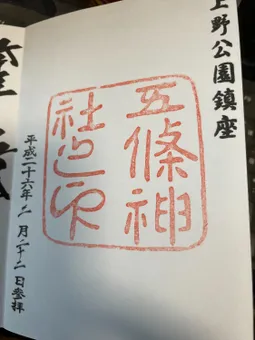 上野公園鎮座
五條神
社之印
平成二十六年二月二十二日参拝